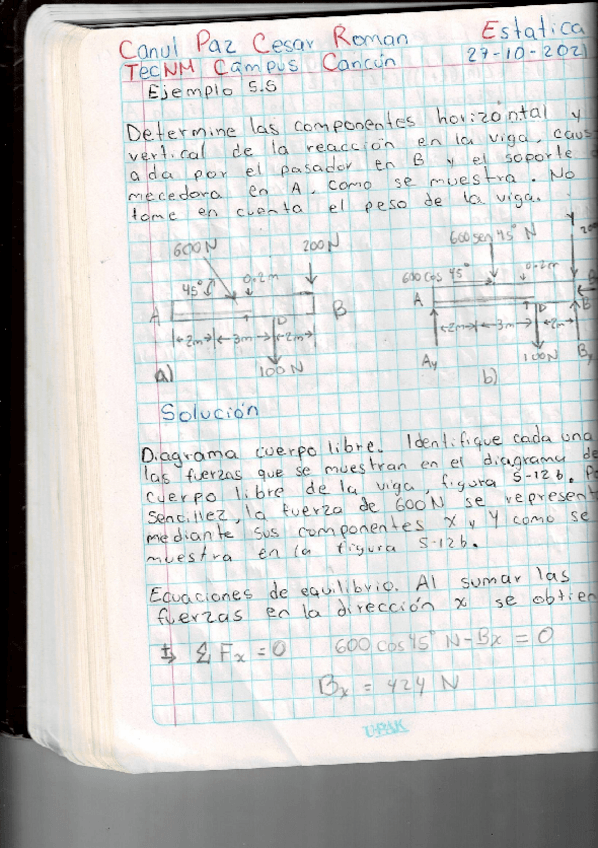 Canul Paz Cesar Roman Estatica
TecNM Campus Cancún 27-10-2021
Ejemplo 5.5
Determine las componentes horizontal y
vertical de la reacción en la viga, caus
ada por el pasador en B y el soporte
mecedora en A, como se muestra. No
tome en cuenta el peso de la viga.
600 N 200 N
45° 0.2m
A B
2m 3m D 2m
100 N
a)
600 sen 45° N Y
600 cos 45° 0.2m
A B
2m 3m D 2m
Ay 100N
b)
Solución
Diagrama cuerpo libre. Identifique cada una
las fuerzas que se muestran en el diagrama de
cuerpo libre de la viga, figura 5-12b.
Sencillez, la fuerza de 600 N se represent
mediante sus componentes x y Y como se
muestra en la figura 5-12b.
Ecuaciones de equilibrio. Al sumar las
fuerzas en la dirección x se obtien
Σ Fx = 0 600 cos 45° N - Bx = 0
Bx = 424 N